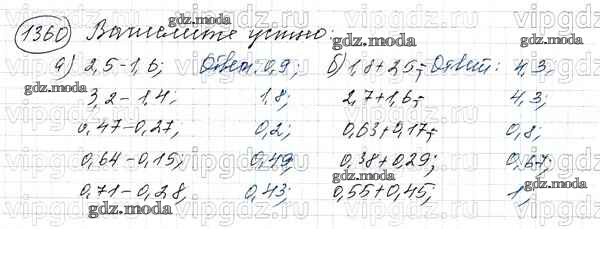 1360 Вычислите устно:
а) 2,5-1,6; Ответ: 0,9; б) 1,8+2,5; Ответ: 4,3;
3,2-1,4; 1,8; 2,7+1,6; 4,3;
0,47-0,27; 0,2; 0,63+0,17; 0,8;
0,64-0,15; 0,49; 0,38+0,29; 0,67;
0,71-0,28 0,43; 0,55+0,45; 1;
gdz.moda
vipgdz.ru